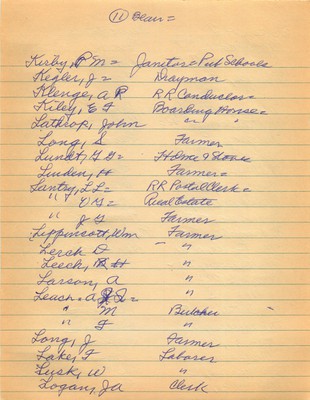 (11) Blair =
Kirby, P M = Janitor = Pub Schools
Kegler, J = Drayman
Klenge, A P R.R. Conductor =
Kiley, E F Boarding House =
Lathrop, John "
Long, S Farmer
Lundt, G G =
Linden, H Farmer =
Lantry, L L = R R Postal Clerk =
" V G = Real Estate
" J G Farmer
Lippincott, Wm Farmer
Lerch D "
Leech, H "
Larson, A "
Leach = A J =
" M Butcher
" F "
Long, J Farmer
Lake, F Laborer
Lusk, W "
Logan, JA Clerk